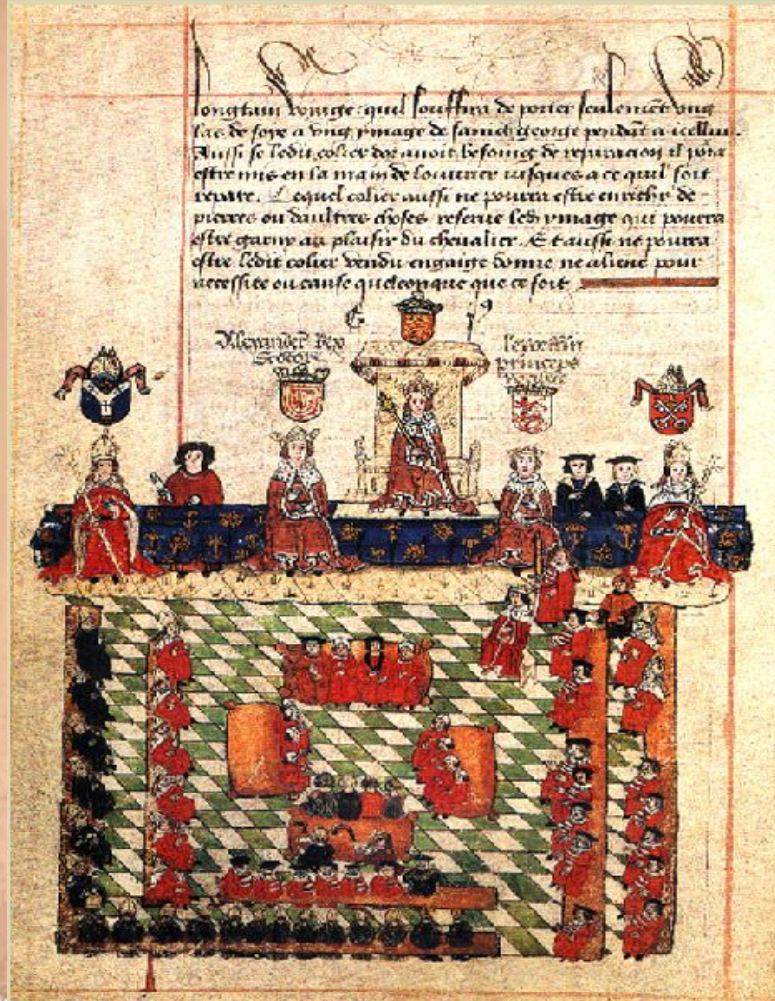 longtain voiaige quil souffira de porter seulement ung
las de soye a ung ymage de sainct george pendant a icelluy.
Aussi se ledit colier dor avoit besoing de reparacion il pora
estre mis en la main de louvrier jusques a ce quil soit
repare. Lequel colier aussi ne pourra estre enrichy de
pierres ou daultres choses reserve led ymage qui pourra
estre garny au plaisir du chevalier. Et aussi ne pourra
estre ledit colier vendu engaige donne ne aliene pour
necessite ou cause quelconque que ce soit
Alexander Rex
Scocie
princeps